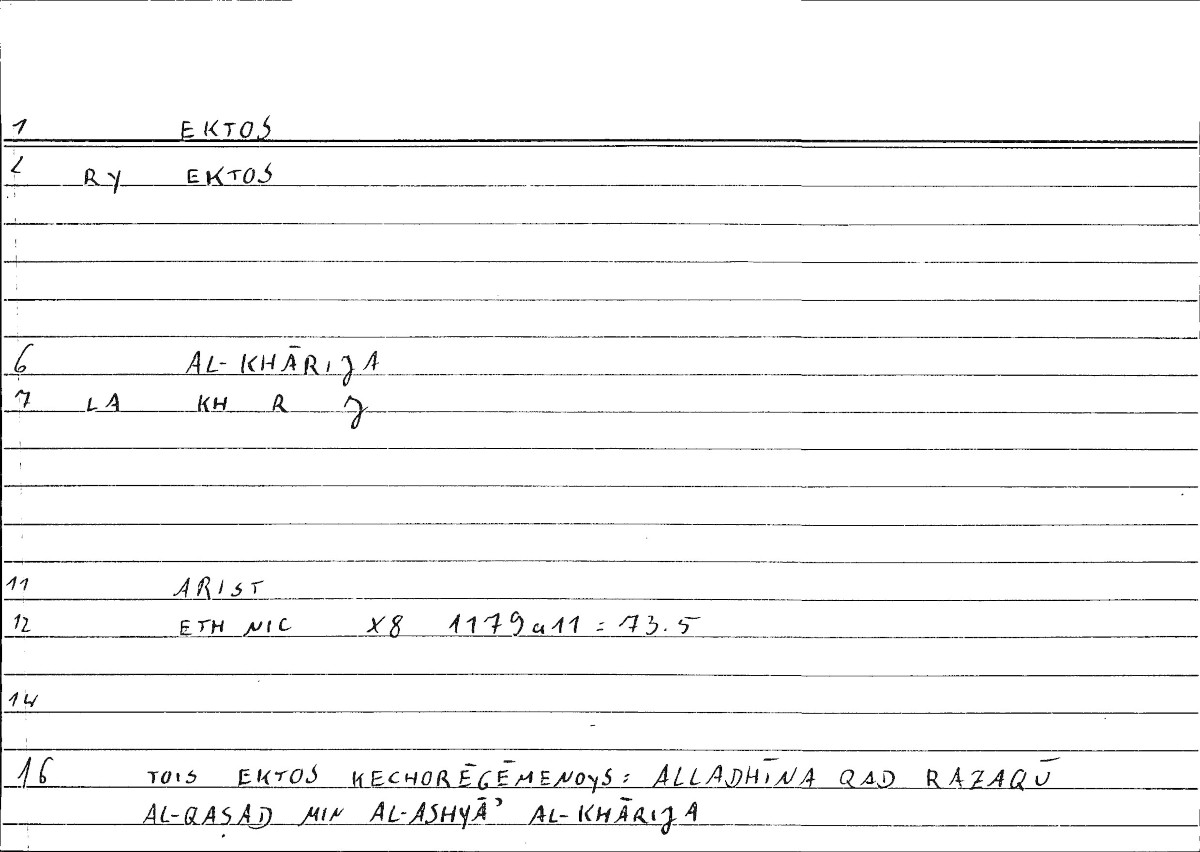 1 EKTOS
2 RY EKTOS
6 AL-KHĀRIJA
7 LA KH R J
11 ARIST
12 ETH NIC X8 1179a11 = 73.5
14
16 TOIS EKTOS KECHORĒGĒMENOYS: ALLADHĪNA QAD RAZAQŪ
AL-QAṢAD MIN AL-ASHYĀʾ AL-KHĀRIJA